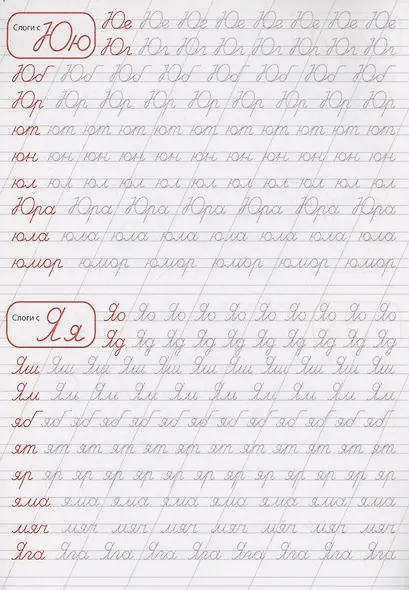 Слоги с Юю
Юе Юе Юе Юе Юе Юе Юе Юе Юе
Юг Юг Юг Юг Юг Юг Юг Юг Юг
Юб Юб Юб Юб Юб Юб Юб Юб
Юр Юр Юр Юр Юр Юр Юр Юр Юр
ют ют ют ют ют ют ют ют ют ют ют
юн юн юн юн юн юн юн юн юн юн юн
юл юл юл юл юл юл юл юл юл юл юл
Юра Юра Юра Юра Юра Юра Юра
юла юла юла юла юла юла юла юла
юмор юмор юмор юмор юмор юмор
Слоги с Яя
Яо Яо Яо Яо Яо Яо Яо Яо Яо Яо
Яд Яд Яд Яд Яд Яд Яд Яд Яд Яд
Яш Яш Яш Яш Яш Яш Яш Яш Яш Яш Яш
Ям Ям Ям Ям Ям Ям Ям Ям Ям
яб яб яб яб яб яб яб яб яб яб яб яб яб
ят ят ят ят ят ят ят ят ят ят ят ят
яр яр яр яр яр яр яр яр яр яр яр яр
яма яма яма яма яма яма яма яма
мяч мяч мяч мяч мяч мяч мяч мяч
Яга Яга Яга Яга Яга Яга Яга Яга Яга